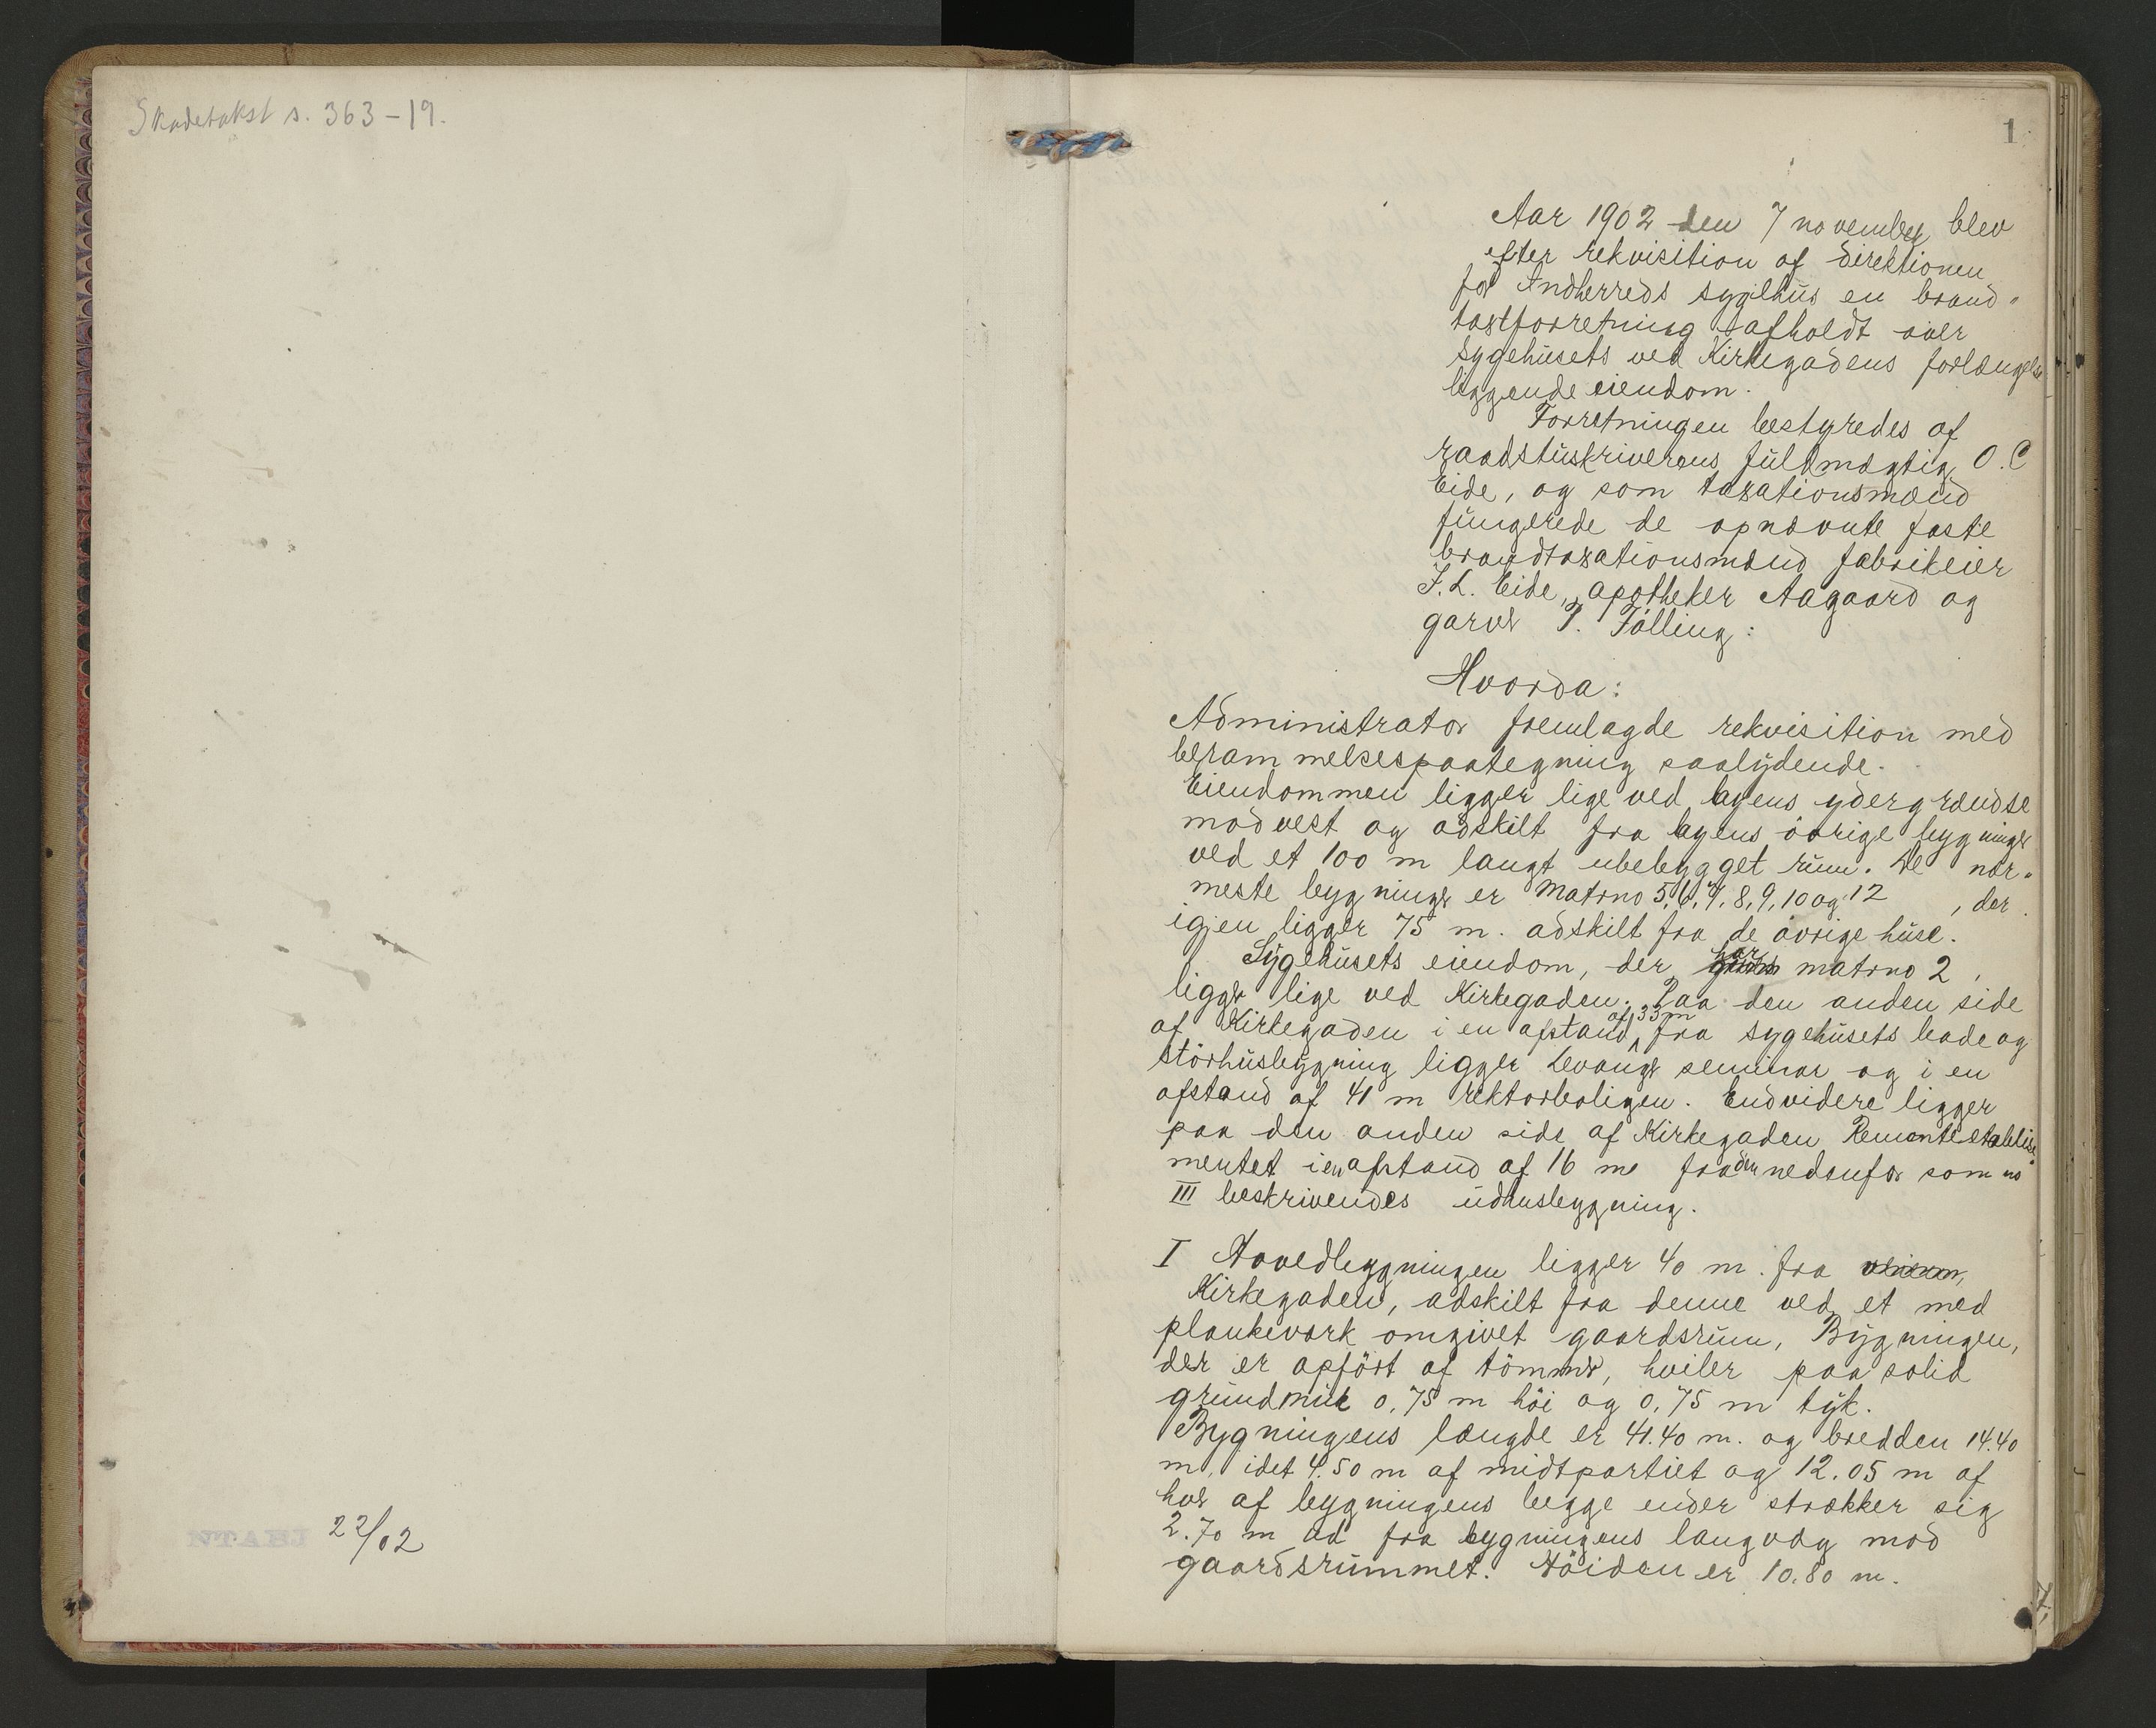 Skadetakst s. 363-19.
22/02
1
Aar 1902 den 7 november blev
efter rekvisition af direktionen
for Indherreds sygehus en brand-
taxtforretning afholdt over
sygehusets ved Kirkegadens forlængelse
liggende eiendom.
Forretningen bestyredes af
raadstuskriverens fuldmægtig O. C
Eide, og som taxationsmænd
fungerede de opnævnte faste
brandtaxationsmænd fabrikeier
J. L. Eide, apotheker Aagaard og
garver P. Fölling:
Hvorda:
Administrator fremlagde rekvisition med
berammelsespaategning saalydende.
Eiendommen ligger lige ved byens ydergrændse
mod vest og adskilt fra byens övrige bygninger
ved et 100 m langt ubebygget rum. De nær-
meste bygninger er Matrno 5, 6, 7, 8, 9, 10 og 12 , der
igjen ligger 75 m. adskilt fra de övrige huse.
Sygehusets eiendom, der har matrno 2,
ligger lige ved Kirkegaden. Paa den anden side
af Kirkegaden i en afstand af 33 m fra sygehusets lade og
störhusbygning ligger Levanger seminar og i en
afstand af 41 m rektorboligen. Endvidere ligger
paa den anden side af Kirkegaden Remonteetablisse-
mentet i en afstand af 16 m fra den nedenfor som no
III beskrivendes udhusbygning.
I Hovedbygningen ligger 40 m. fra
Kirkegaden, adskilt fra denne ved et med
plankeværk omgivet gaardsrum, Bygningen,
der er opfört af tömmer, hviler paa solid
grundmur 0,75 m höi og 0,75 m tyk.
Bygningens længde er 41.40 m. og bredden 14.40
m, idet 4.50 m af midtpartiet og 12.05 m af
hver af bygningens begge ender strækker sig
2.70 m ud fra bygningens langvæg mod
gaardsrummet. Höiden er 10.80 m.